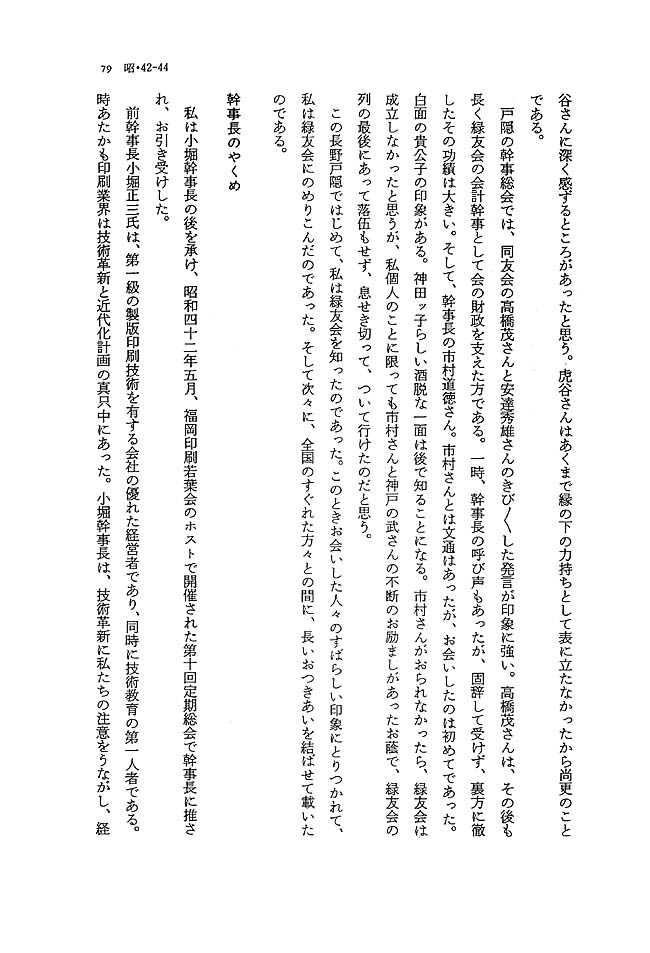 79　昭・42-44
谷さんに深く感ずるところがあったと思う。虎谷さんはあくまで縁の下の力持ちとして表に立たなかったから尚更のこと
である。
　戸隠の幹事総会では、同友会の高橋茂さんと安達秀雄さんのきび〳〵した発言が印象に強い。高橋茂さんは、その後も
長く緑友会の会計幹事として会の財政を支えた方である。一時、幹事長の呼び声もあったが、固辞して受けず、裏方に徹
したその功績は大きい。そして、幹事長の市村道徳さん。市村さんとは文通はあったが、お会いしたのは初めてであった。
白面の貴公子の印象がある。神田ッ子らしい洒脱な一面は後で知ることになる。市村さんがおられなかったら、緑友会は
成立しなかったと思うが、私個人のことに限っても市村さんと神戸の武さんの不断のお励ましがあったお蔭で、緑友会の
列の最後にあって落伍もせず、息せき切って、ついて行けたのだと思う。
　この長野戸隠ではじめて、私は緑友会を知ったのであった。このときお会いした人々のすばらしい印象にとりつかれて、
私は緑友会にのめりこんだのであった。そして次々に、全国のすぐれた方々との間に、長いおつきあいを結ばせて載いた
のである。
幹事長のやくめ
　私は小堀幹事長の後を承け、昭和四十二年五月、福岡印刷若葉会のホストで開催された第十回定期総会で幹事長に推さ
れ、お引き受けした。
　前幹事長小堀正三氏は、第一級の製版印刷技術を有する会社の優れた経営者であり、同時に技術教育の第一人者である。
時あたかも印刷業界は技術革新と近代化計画の真只中にあった。小堀幹事長は、技術革新に私たちの注意をうながし、経